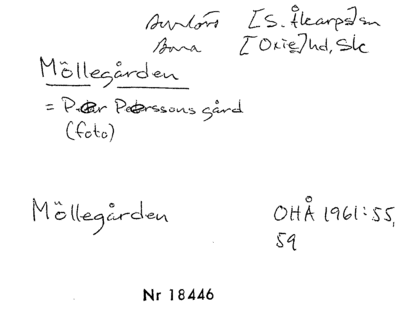 Burlöv [S. Åkarps]sn
Bara [Oxie]hd, Sk
Möllegården
= Per Perssons gård
(foto)
Möllegården OHÅ 1961:55,
59
Nr 18446